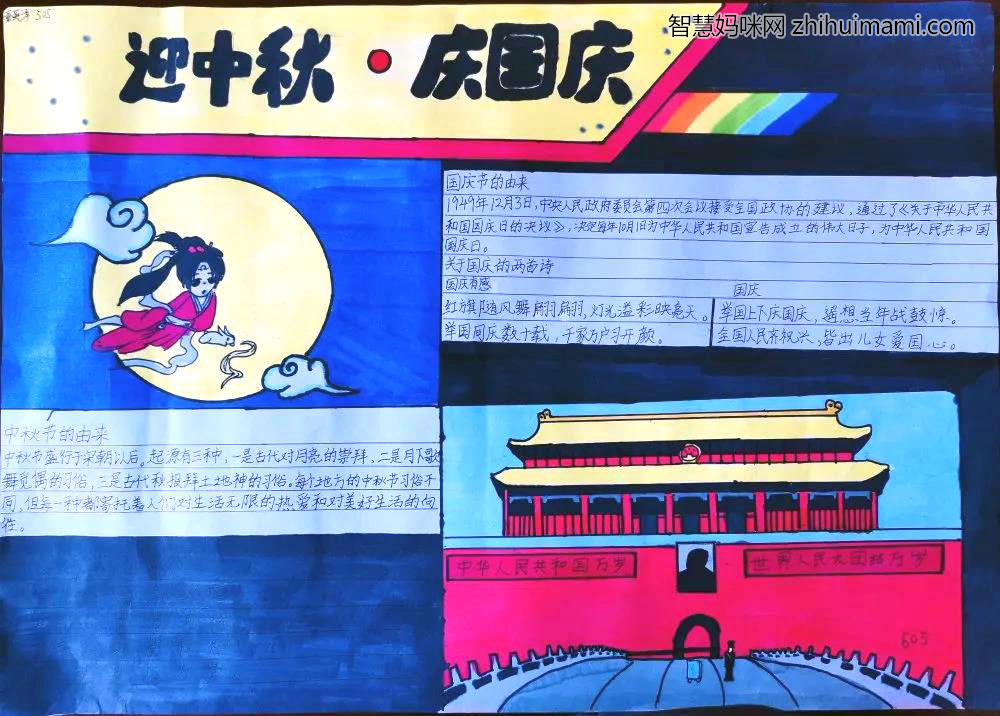 智慧妈咪网 zhihuimami.com
505
迎中秋·庆国庆
国庆节的由来
1949年12月3日,中央人民政府委员会第四次会议接受全国政协的建议,通过了《关于中华人民共
和国国庆日的决议》,决定每年10月1日为中华人民共和国宣告成立的伟大日子,为中华人民共和国
国庆日。
关于国庆的两首诗
国庆有感
红旗随风舞翩翩,灯光溢彩映亮天。
举国同庆数十载,千家万户习开颜。
国庆
举国上下庆国庆,遥想当年战鼓惊。
全国人民齐振兴,皆出儿女爱国心。
中秋节的由来
中秋节盛行于宋朝以后。起源有三种,一是古代对月亮的崇拜,二是月下歌
舞觅偶的习俗,三是古代秋报拜土地神的习俗。每个地方的中秋节习俗不
同,但每一种都寄托着人们对生活无限的热爱和对美好生活的向
往。
中华人民共和国万岁
世界人民大团结万岁
605